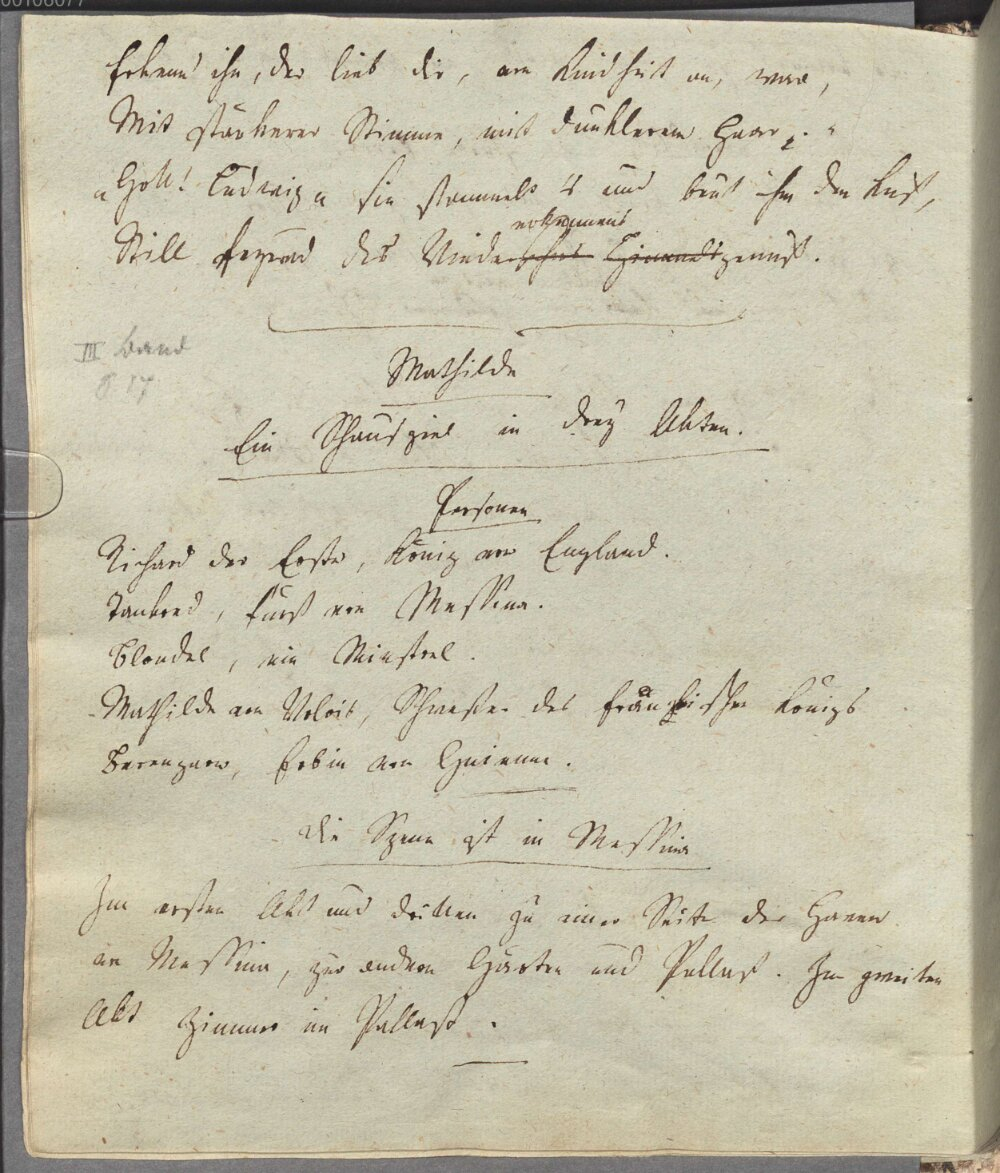 00106077
Erkenn' ihn, der lieb dir, von Kindheit an, war,
Mit stärkerer Stimme, mit dunklerem Haar, . "
"Gott! Ludwig" sie stammelt's und beut ihm den Kuß,
erkennens
Still segnend des Wiedersehns Himmelsgenuß.
III Band
S 17
Mathilde
Ein Schauspiel in drey Akten.
Personen
Richard der Erste, König von England.
Tankred, Fürst von Messina.
Blondel, ein Minstrel.
Mathilde von Valois, Schwester des französischen Königs
Berengare, Erbin von Guienne.
Die Szene ist in Messina
Im ersten Akt und dritten zu einer Seite der Haven
von Messina, zur andern Gärten und Pallast. Im zweiten
Akt Zimmer im Pallast.